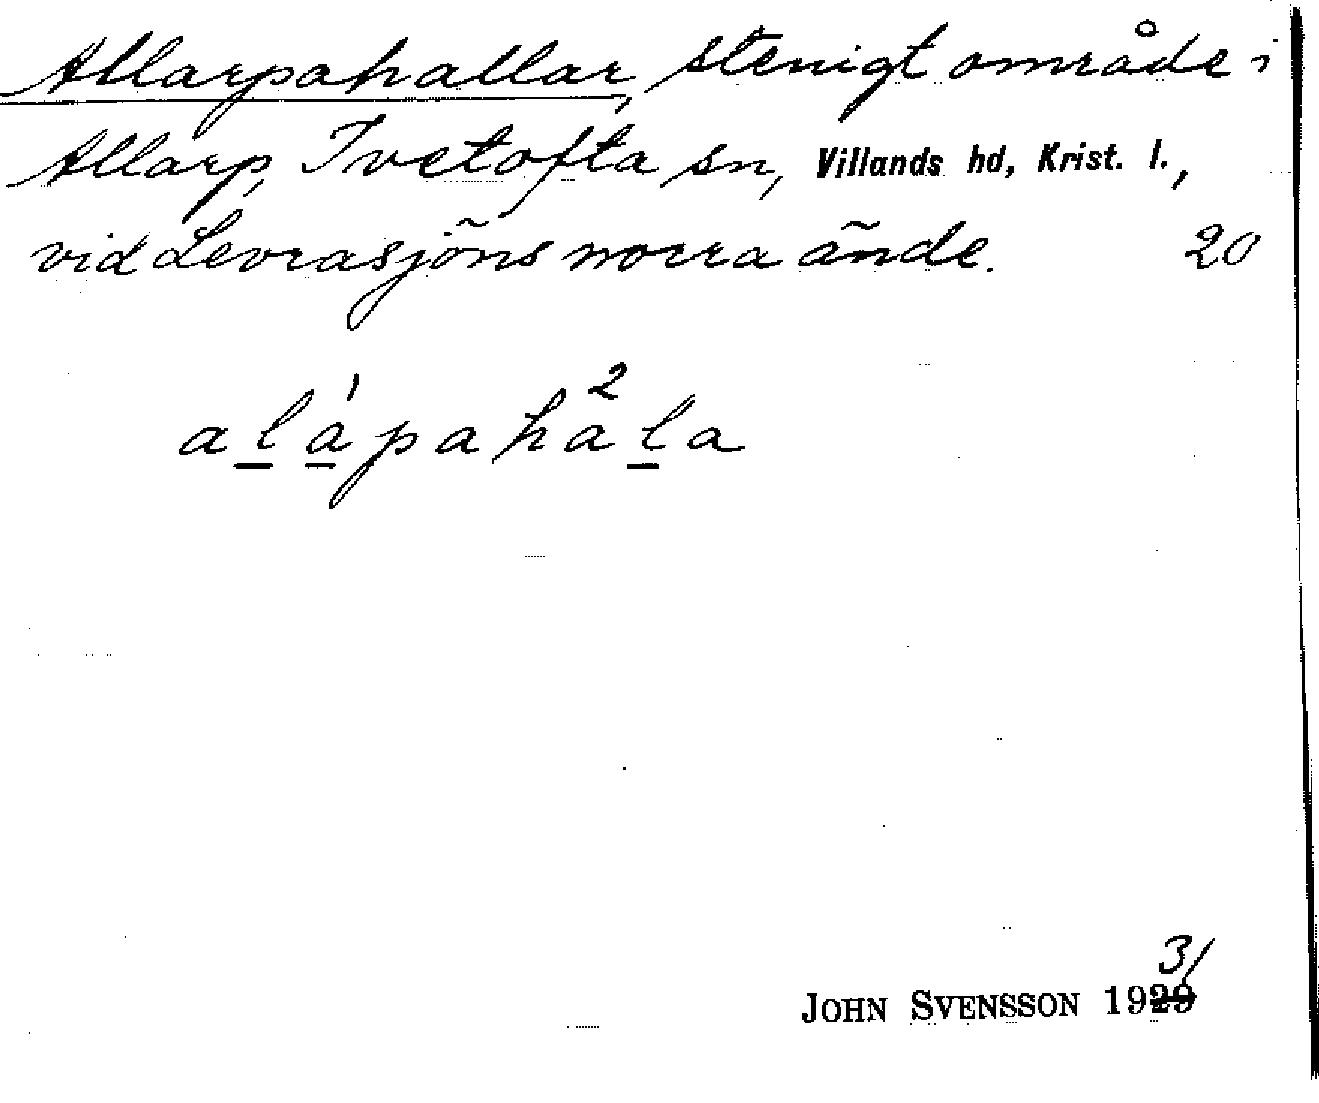 Allarpahallar, stenigt område i
Allarp, Ivetofta sn, Villands hd, Krist. l.,
vid Levrasjöns norra ände. 20
alápaha²la
31
JOHN SVENSSON 1929